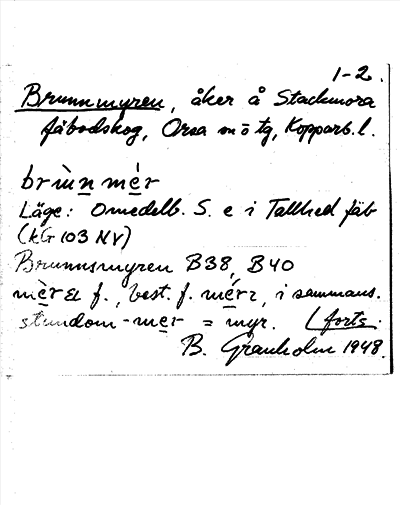 1-2.
Brunnmyren, åker å Stackmora
fäbodskog, Orsa sn o tg, Kopparb. l.
brùn mér
Läge: Omedelb. S. e i Tallhed fäb
(kG 103 NV)
Brunnsmyren B38, B40
mèra f., best. f. mérɩ, i sammans.
stundom -mer = myr. (forts.
B. Granholm 1948.